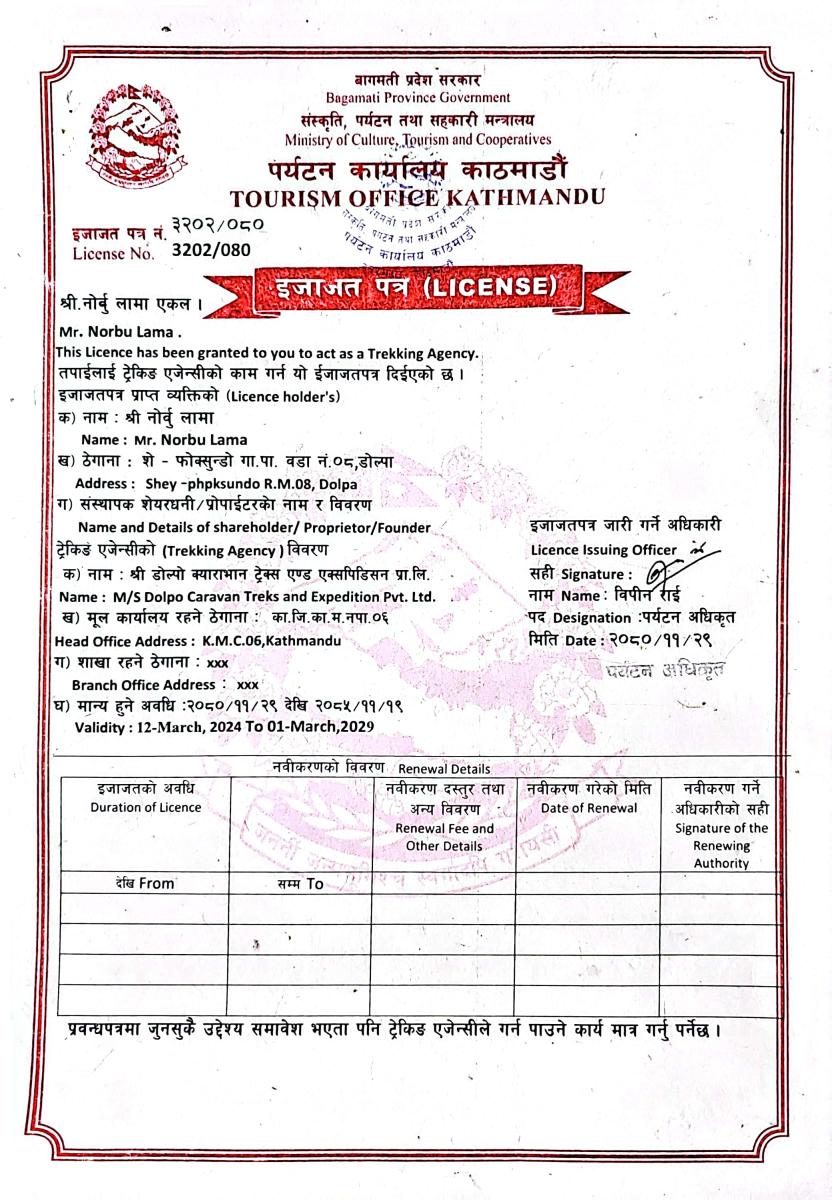 बागमती प्रदेश सरकार
Bagamati Province Government
संस्कृति, पर्यटन तथा सहकारी मन्त्रालय
Ministry of Culture, Tourism and Cooperatives
पर्यटन कार्यालय काठमाडौं
TOURISM OFFICE KATHMANDU
बागमती प्रदेश सरकार
संस्कृति, पर्यटन तथा सहकारी मन्त्रालय
पर्यटन कार्यालय काठमाडौं
इजाजत पत्र नं. ३२०२/०८०
License No. 3202/080
इजाजत पत्र (LICENSE)
श्री.नोर्बु लामा एकल ।
Mr. Norbu Lama .
This Licence has been granted to you to act as a Trekking Agency.
तपाईलाई ट्रेकिङ एजेन्सीको काम गर्न यो ईजाजतपत्र दिईएको छ ।
इजाजतपत्र प्राप्त व्यक्तिको (Licence holder's)
क) नाम : श्री नोर्बु लामा
Name : Mr. Norbu Lama
ख) ठेगाना : शे - फोक्सुन्डो गा.पा. वडा नं.०८,डोल्पा
Address : Shey -phpksundo R.M.08, Dolpa
ग) संस्थापक शेयरधनी/प्रोपाईटरको नाम र विवरण
Name and Details of shareholder/ Proprietor/Founder
ट्रेकिङ एजेन्सीको (Trekking Agency ) विवरण
क) नाम : श्री डोल्पो क्याराभान ट्रेक्स एण्ड एक्सपिडिसन प्रा.लि.
Name : M/S Dolpo Caravan Treks and Expedition Pvt. Ltd.
ख) मूल कार्यालय रहने ठेगाना : का.जि.का.म.नपा.०६
Head Office Address : K.M.C.06,Kathmandu
ग) शाखा रहने ठेगाना : xxx
Branch Office Address : xxx
घ) मान्य हुने अवधि :२०८०/११/२९ देखि २०८५/११/१९
Validity : 12-March, 2024 To 01-March,2029
इजाजतपत्र जारी गर्ने अधिकारी
Licence Issuing Officer
सही Signature :
नाम Name : विपीन राई
पद Designation :पर्यटन अधिकृत
मिति Date : २०८०/११/२९
पर्यटन अधिकृत
नवीकरणको विवरण Renewal Details
इजाजतको अवधि
Duration of Licence
नवीकरण दस्तुर तथा
अन्य विवरण
Renewal Fee and
Other Details
नवीकरण गरेको मिति
Date of Renewal
नवीकरण गर्ने
अधिकारीको सही
Signature of the
Renewing
Authority
देखि From
सम्म To
जननी जन्मभूमिश्च स्वर्गादपि गरीयसी
प्रवन्धपत्रमा जुनसुकै उद्देश्य समावेश भएता पनि ट्रेकिङ एजेन्सीले गर्न पाउने कार्य मात्र गर्नु पर्नेछ ।